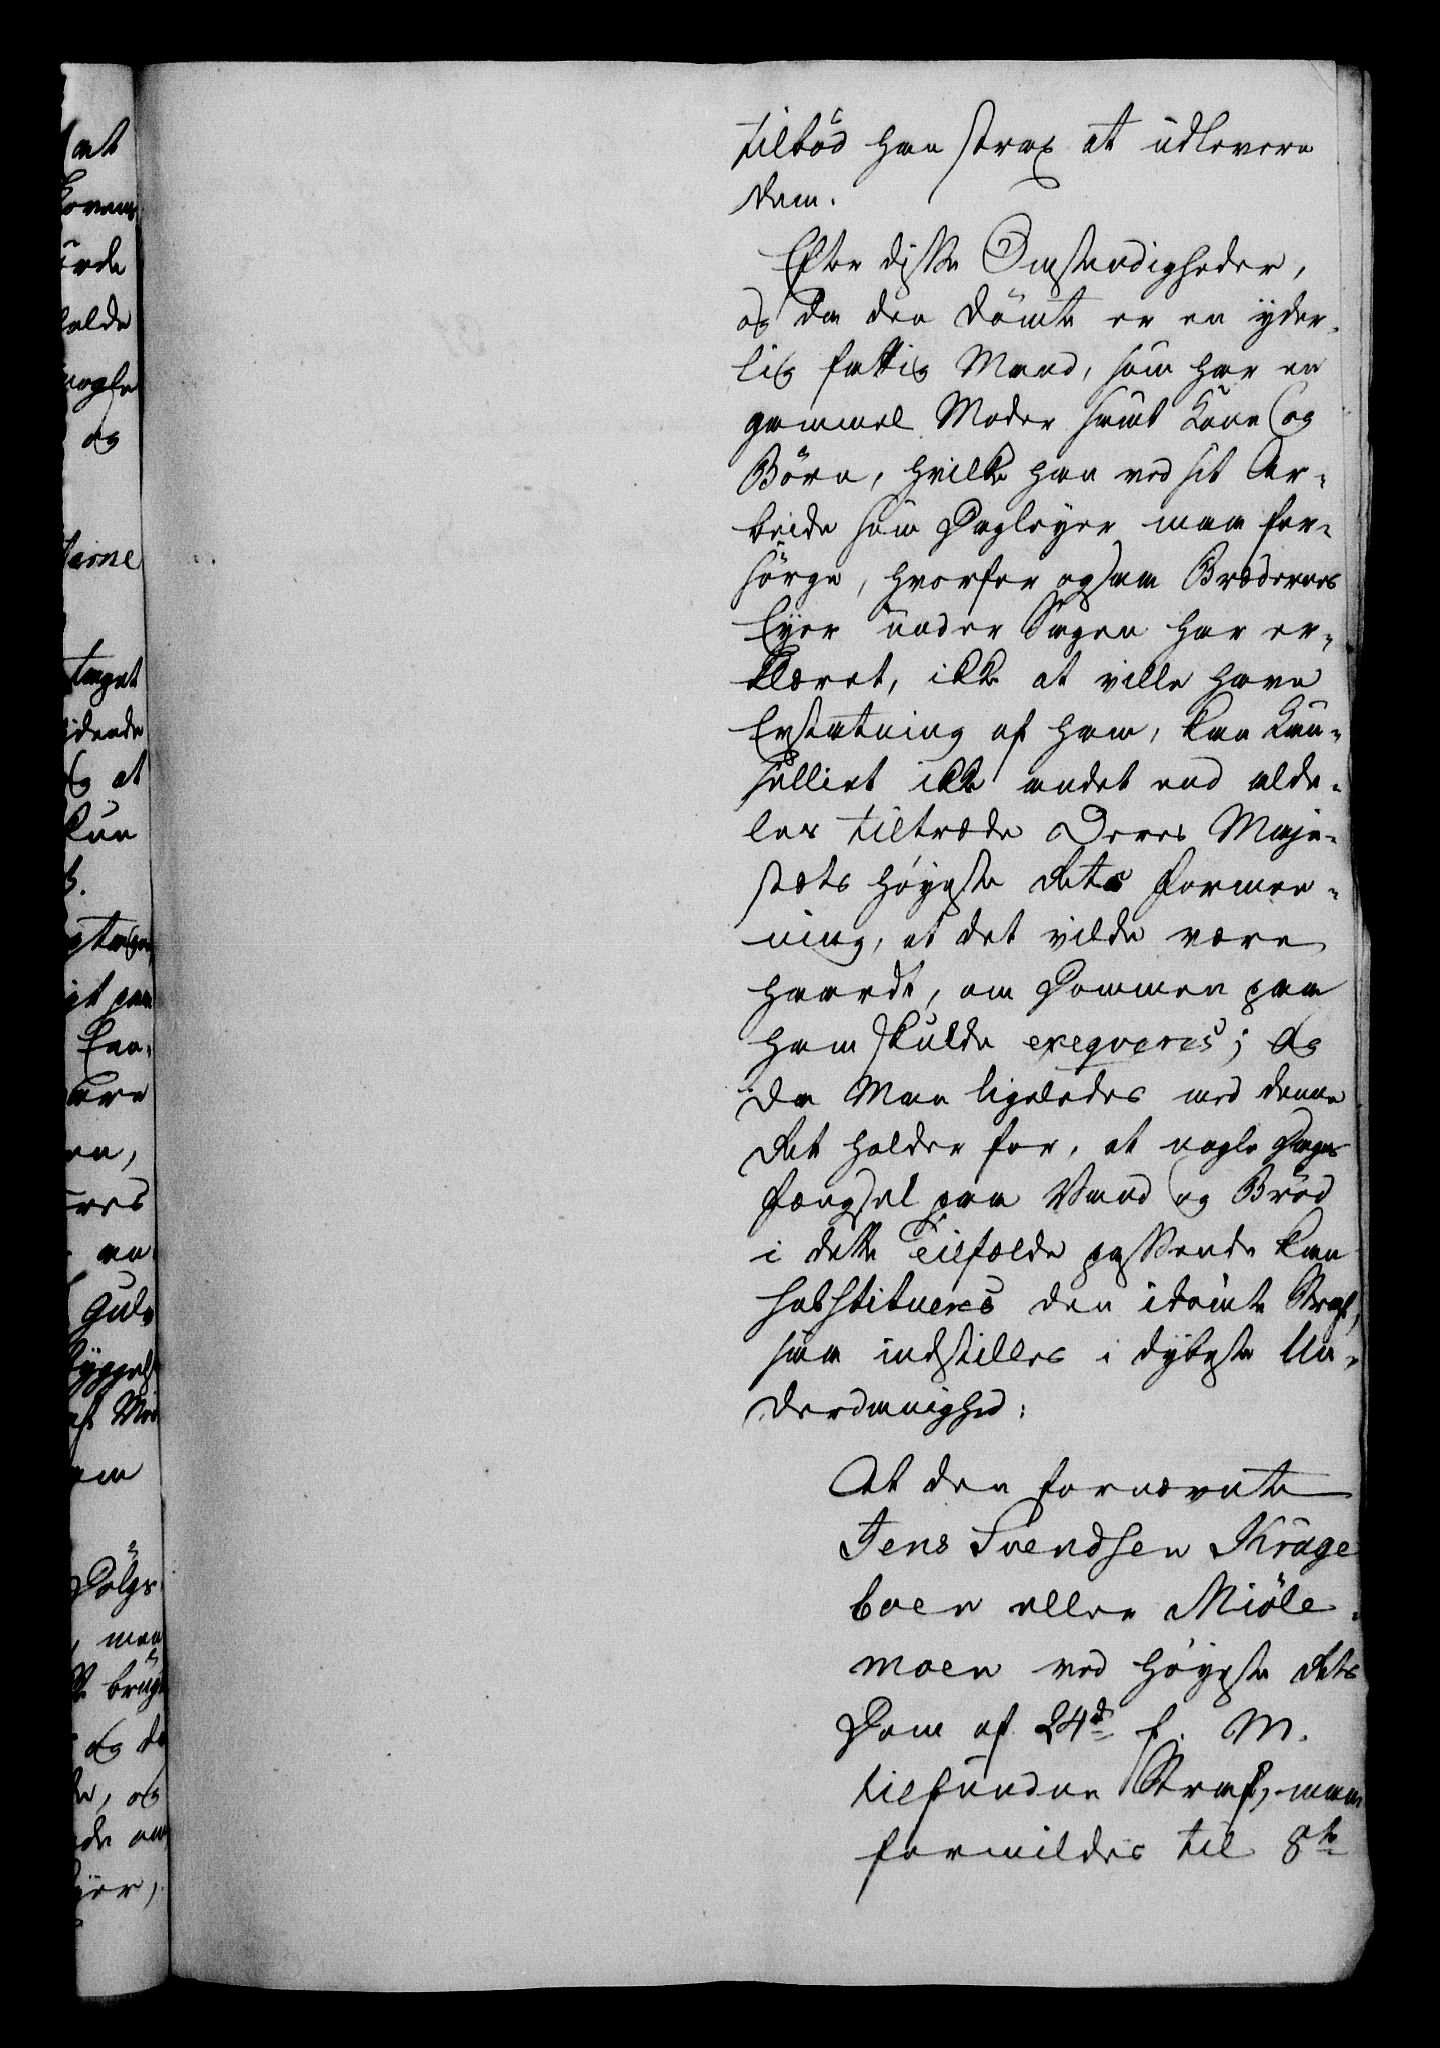 tilbød han strax at udlevere
dem.
Efter disse Omstændigheder,
og da den dömte er en yder-
lig fattig Mand, som har en
gammel Moder samt Kone og
Børn, hvilke han ved sit Ar-
beide som Dagleyer maa for-
sørge, hvorfor ogsaa Brædernes
Eyer under Sagen har er-
klæret, ikke at ville have
Erstatning af ham, kan Can-
selliet ikke andet end alde-
les tiltræde Deres Maje-
stæts høyeste Rets Formee-
ning, at det vilde være
haardt, om Dommen paa
ham skulde exeqveres; Og
da Man ligeledes med denne
Ret holder for, at nogle Dages
Fængsel paa Vand og Brød
i dette Tilfælde passende kan
substitueres den idömte Straf,
saa indstilles i dybeste Un-
derdanighed:
At den fornævnte
Jens Svendsen Krage
boen eller Miöle-
moen ved Høyeste Rets
Dom af 24d f. M.
tilfundne Straf, maa
formildes til 8te